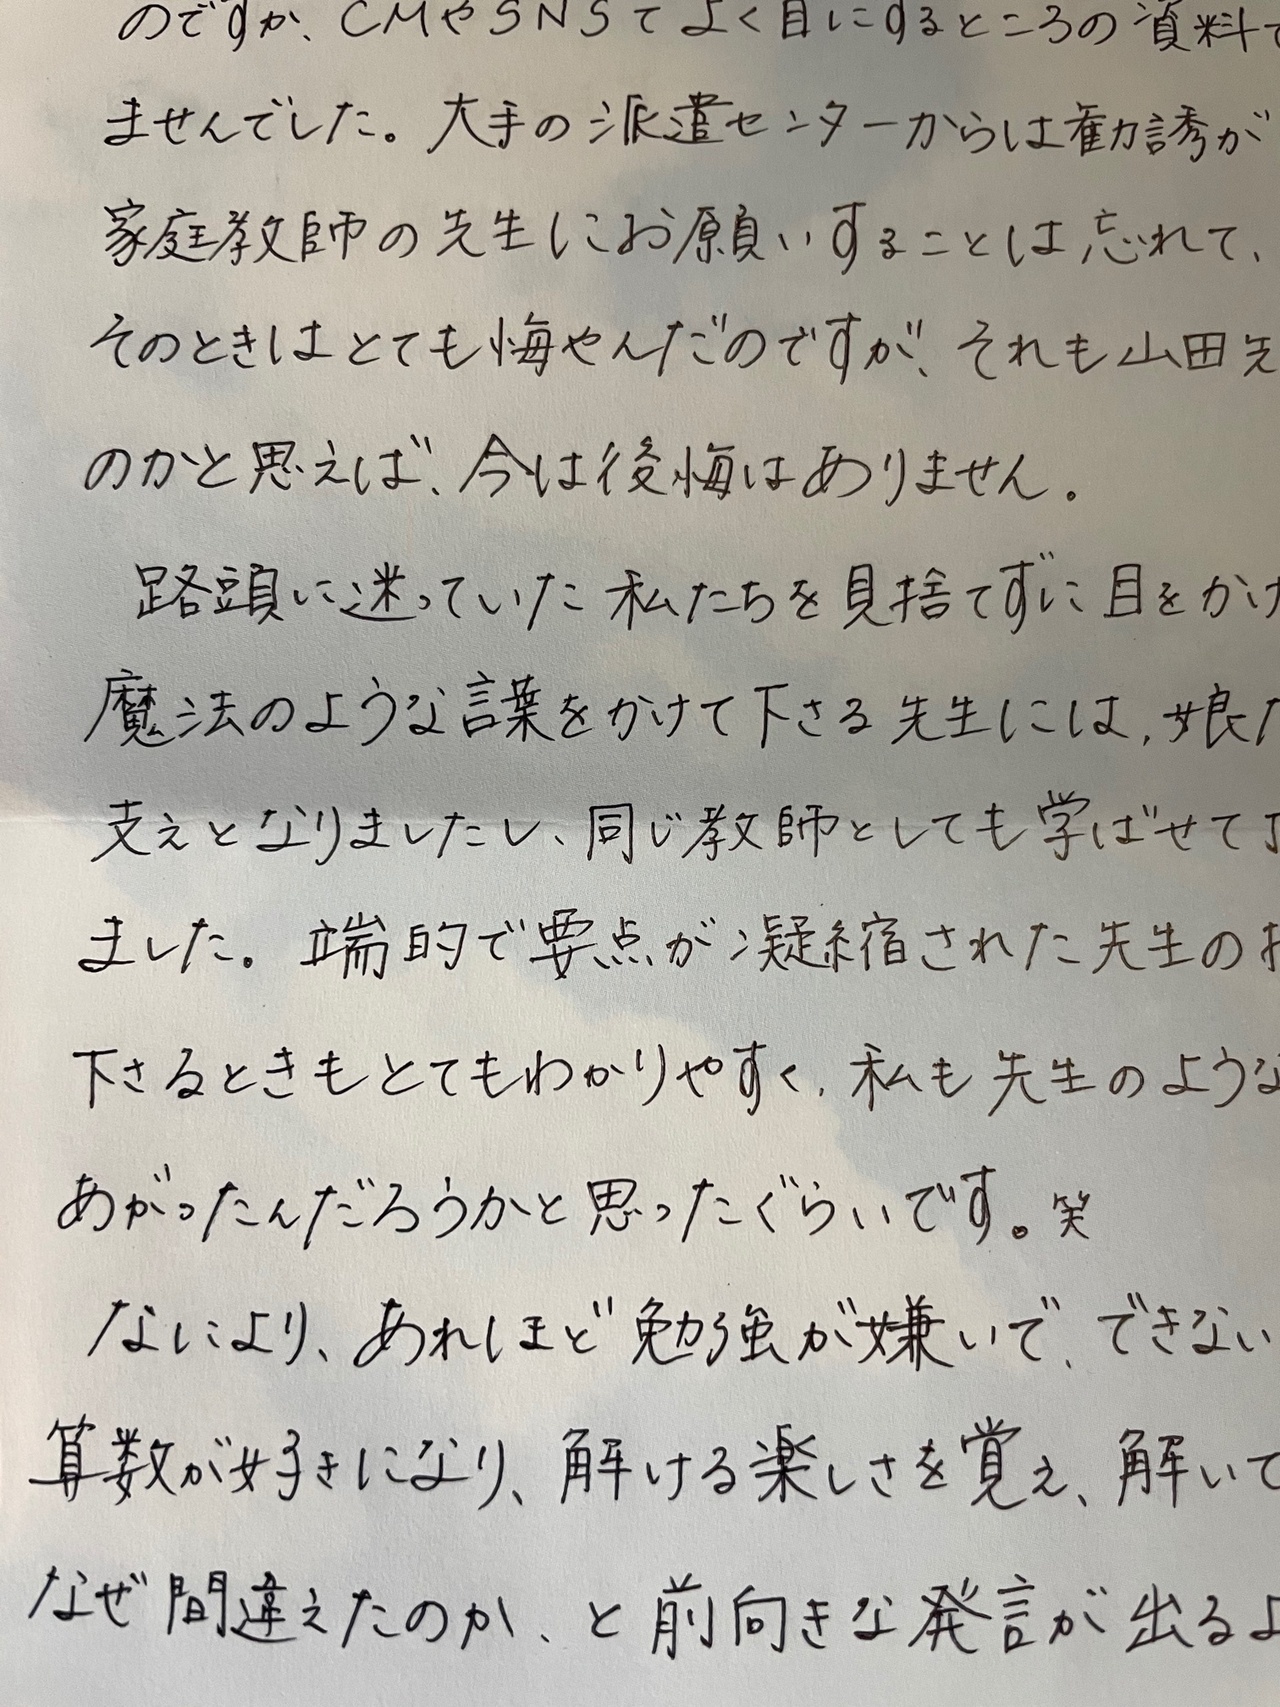 のですが、CMやSNSでよく目にするところの資料
ませんでした。大手の派遣センターからは勧誘が
家庭教師の先生にお願いすることは忘れて、
そのときはとても悔やんだのですが、それも山田先
のかと思えば、今は後悔はありません。
路頭に迷っていた私たちを見捨てずに目をかけ
魔法のような言葉をかけて下さる先生には、娘た
支えとなりましたし、同じ教師としても学ばせて
ました。端的で要点が凝縮された先生のお
下さるときもとてもわかりやすく、私も先生のような
あがったんだろうかと思ったぐらいです。笑
なにより、あれほど勉強が嫌いで、できない
算数が好きになり、解ける楽しさを覚え、解いて
なぜ間違えたのか、と前向きな発言が出るよ